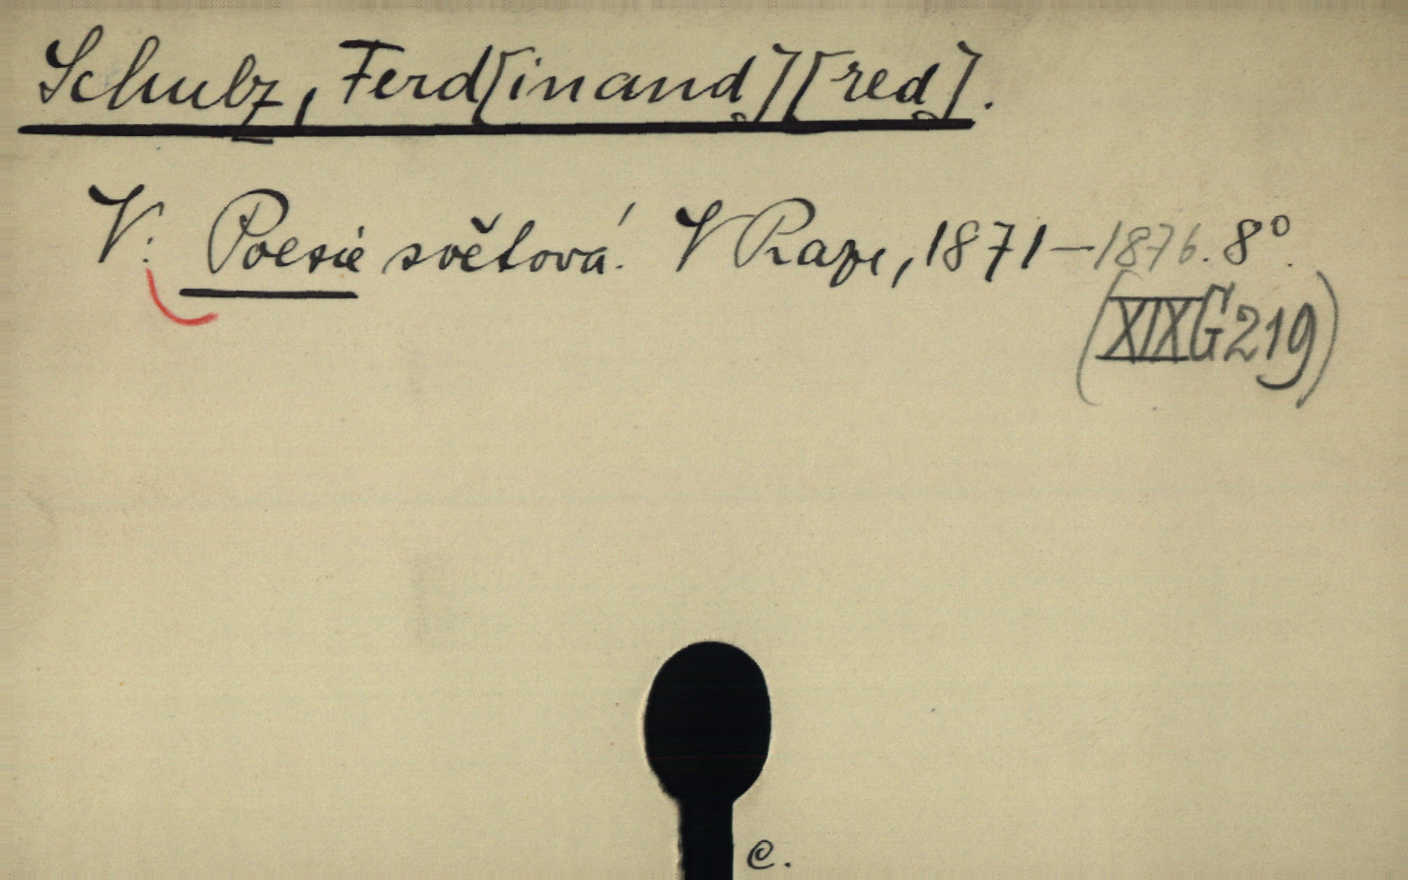 Schulz, Ferd[inand][red].
V: Poesie světová. V Praze, 1871–1876. 8°.
(XIX G 219)
C.